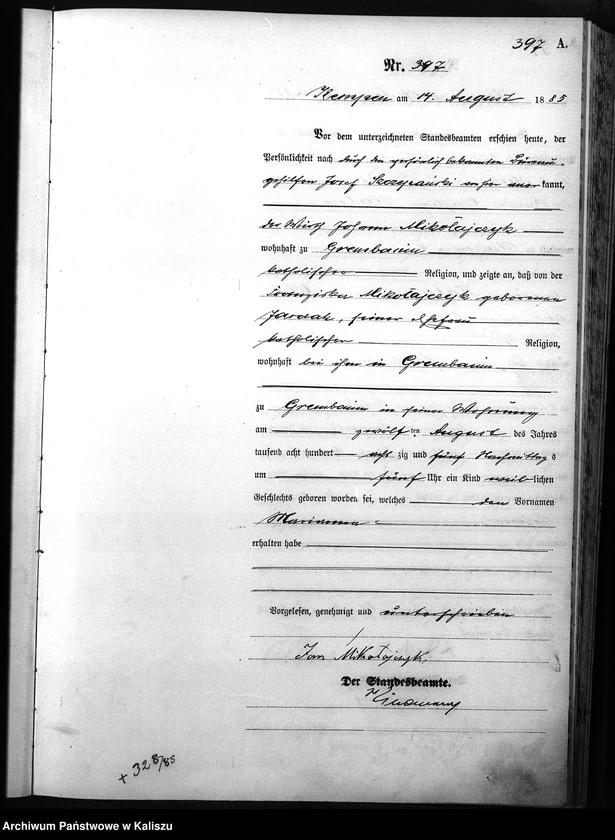 397 A.
Nr. 397
Kempen am 14. August 1885
Vor dem unterzeichneten Standesbeamten erschien heute, der
Persönlichkeit nach durch den persönlich bekannten Bureau-
gehilfen Josef Szczepański von hier anerkannt,
der Wirth Johann Mikołajczyk
wohnhaft zu Grembanin
katholischer Religion, und zeigte an, daß von der
Franziska Mikołajczyk geborenen
seiner Ehefrau
katholischer Religion,
wohnhaft bei ihm in Grembanin
zu Grembanin in seiner Wohnung
am zwölften August des Jahres
tausend acht hundert achtzig und fünf Nachmittags
um fünf Uhr ein Kind weiblichen
Geschlechts geboren worden sei, welches den Vornamen
Marianna
erhalten habe
Vorgelesen, genehmigt und unterschrieben
Jan Mikołajczyk,
Der Standesbeamte.
+ 328/85
Archiwum Państwowe w Kaliszu